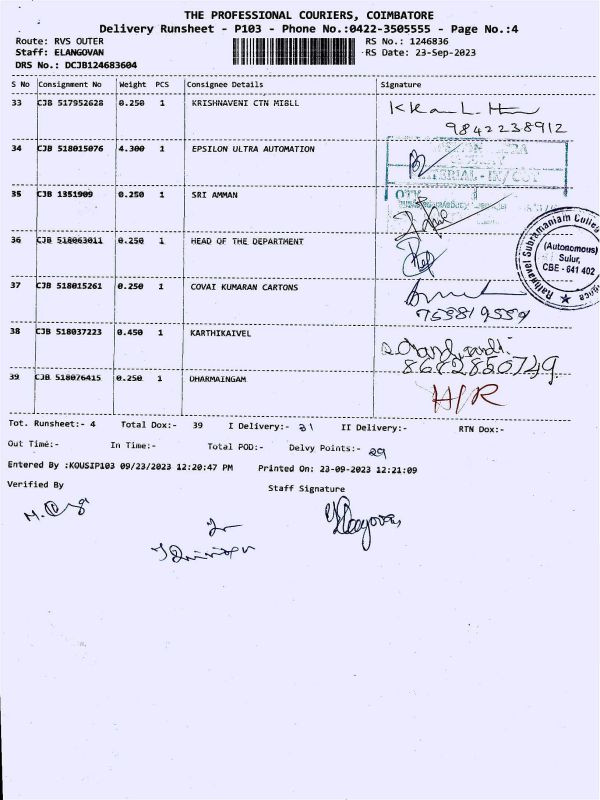 THE PROFESSIONAL COURIERS, COIMBATORE
Delivery Runsheet - P103 - Phone No.:0422-3505555 - Page No.:4
Route: RVS OUTER RS No.: 1246836
Staff: ELANGOVAN RS Date: 23-Sep-2023
DRS No.: DCJB124683604
S No Consignment No Weight PCS Consignee Details Signature
33 CJB 517952628 0.250 1 KRISHNAVENI CTN MI8LL
9842238912
34 CJB 518015076 4.300 1 EPSILON ULTRA AUTOMATION
MATERIAL - IN / OUT
35 CJB 1351909 0.250 1 SRI AMMAN
QTY
36 CJB 518063011 0.250 1 HEAD OF THE DEPARTMENT
Rathnavel Subramaniam College
(Autonomous)
Sulur,
CBE - 641 402
37 CJB 518015261 0.250 1 COVAI KUMARAN CARTONS
38 CJB 518037223 0.450 1 KARTHIKAIVEL
39 CJB 518076415 0.250 1 DHARMAINGAM
H/R
Tot. Runsheet:- 4 Total Dox:- 39 I Delivery:- 31 II Delivery:- RTN Dox:-
Out Time:- In Time:- Total POD:- Delvy Points:- 29
Entered By :KOUSIP103 09/23/2023 12:20:47 PM Printed On: 23-09-2023 12:21:09
Verified By Staff Signature